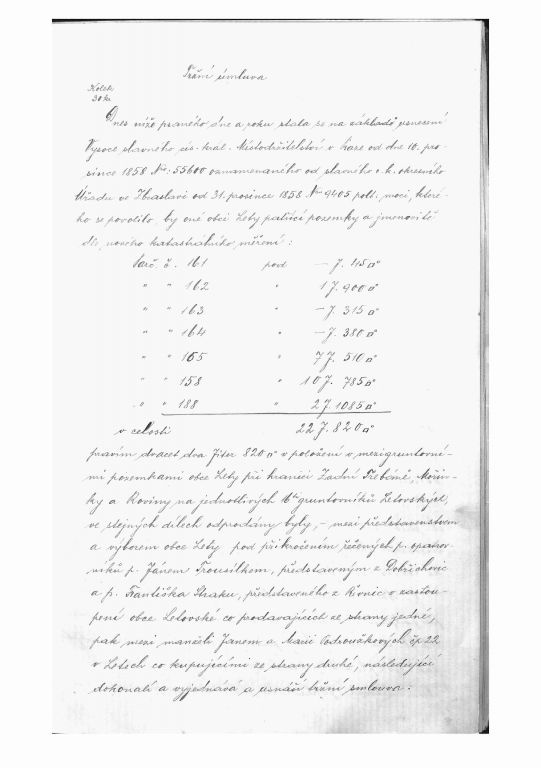 Tržní úmluva
Kolek
30 kr
Dnes níže psaného dne a roku stala se na základě usnesení
Vysoce slavného cís. král. Místodržitelství v Praze od dne 10. pro-
since 1858 No. 55600 oznamenaného od slavného c. k. okresního
Úřadu ve Zbraslavi od 31. prosince 1858 No 9405 polt. moci, které-
ho se povolilo by oné obci Lety patřící pozemky a jmenovitě
dle nového katastrálního měření:
Parc. č. 161 pod — J. 45□°
" " 162 " 1 J. 900□°
" " 163 " — J. 315□°
" " 164 " — J. 380□°
" " 165 " 7 J. 510□°
" " 158 " 10 J. 785□°
" " 188 " 2 J. 1085□°
v celosti 22 J. 820□°
pravím dvacet dva Jiter 820□° v položení v mezigruntovní-
mi pozemkami obce Lety při hranici Zadní Třebáně, Mořin-
ky a Roviny na jednotlivých gruntovníků Letovských,
ve stejných dílech odprodány byly, – mezi představenstvem
a výborem obce Lety pod přikročením řečených p. opatrov-
níků p. Jánem Trousílkem, představeným z Dobřichovic
a p. Františka Straku, představeného z Řevnic v zastou-
pení obce Letovské co prodávajících ze strany jedné,
pak mezi manželi Janem a Marií čp 22
v Letech co kupujícími ze strany druhé, následující
dokonalí a vyjednává a usnáší tržní smlouva: